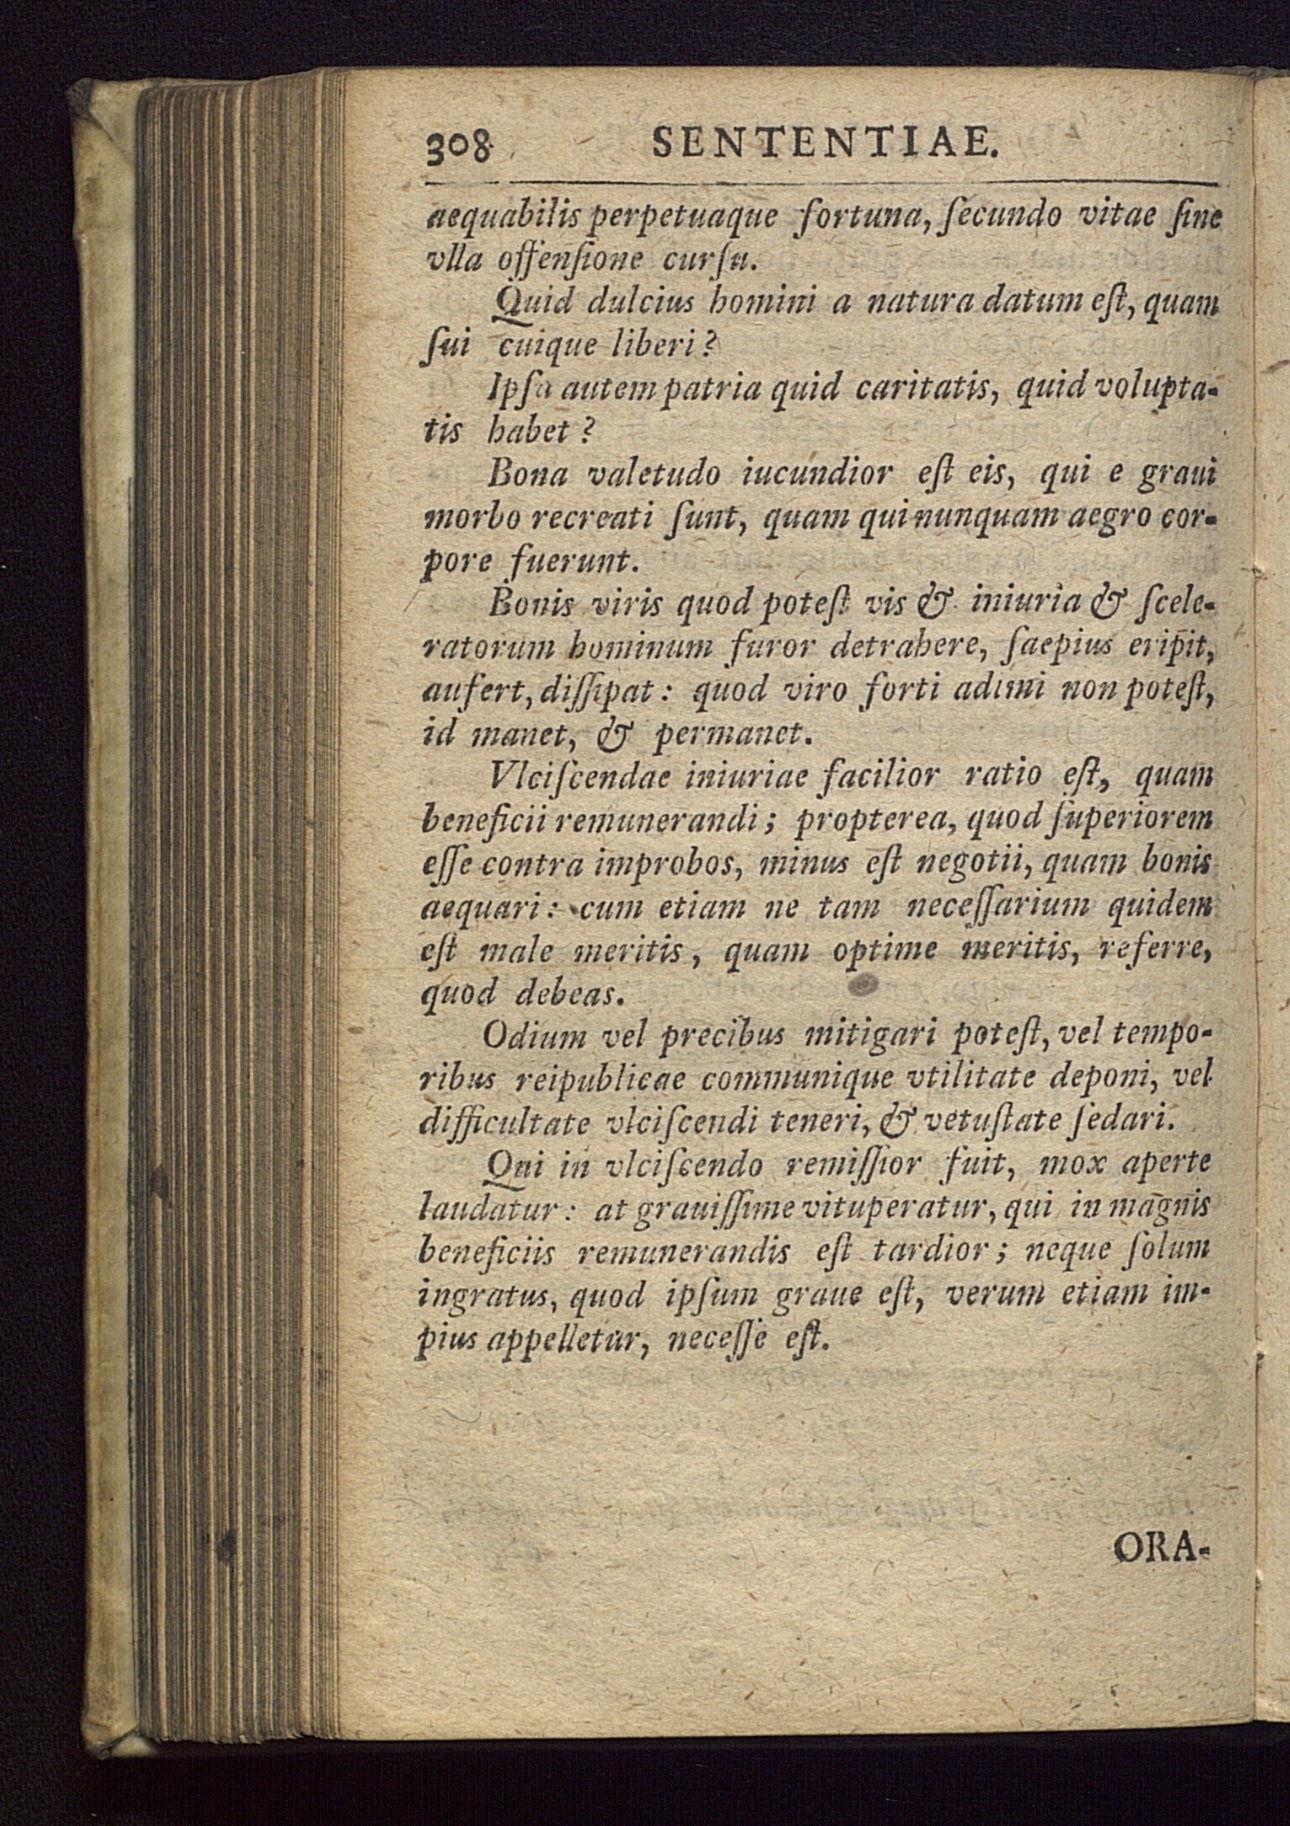 308 SENTENTIAE.
aequabilis perpetuaque fortuna, ſecundo vitae ſine
vlla offenſione curſu.
Quid dulcius homini a natura datum eſt, quam
ſui cuique liberi?
Ipſa autem patria quid caritatis, quid volupta-
tis habet?
Bona valetudo iucundior eſt eis, qui e graui
morbo recreati ſunt, quam qui nunquam aegro cor-
pore fuerunt.
Bonis viris quod poteſt vis & iniuria & ſcele-
ratorum hominum furor detrahere, ſaepius eripit,
aufert, diſſipat: quod viro forti adimi non poteſt,
id manet, & permanet.
Vlciſcendae iniuriae facilior ratio eſt, quam
beneficii remunerandi; propterea, quod ſuperiorem
eſſe contra improbos, minus eſt negotii, quam bonis
aequari: cum etiam ne tam neceſſarium quidem
eſt male meritis, quam optime meritis, referre,
quod debeas.
Odium vel precibus mitigari poteſt, vel tempo-
ribus reipublicae communique vtilitate deponi, vel
difficultate vlciſcendi teneri, & vetuſtate ſedari.
Qui in vlciſcendo remiſſior fuit, mox aperte
laudatur: at grauiſſime vituperatur, qui in magnis
beneficiis remunerandis eſt tardior; neque ſolum
ingratus, quod ipſum graue eſt, verum etiam im-
pius appelletur, neceſſe eſt.
ORA-